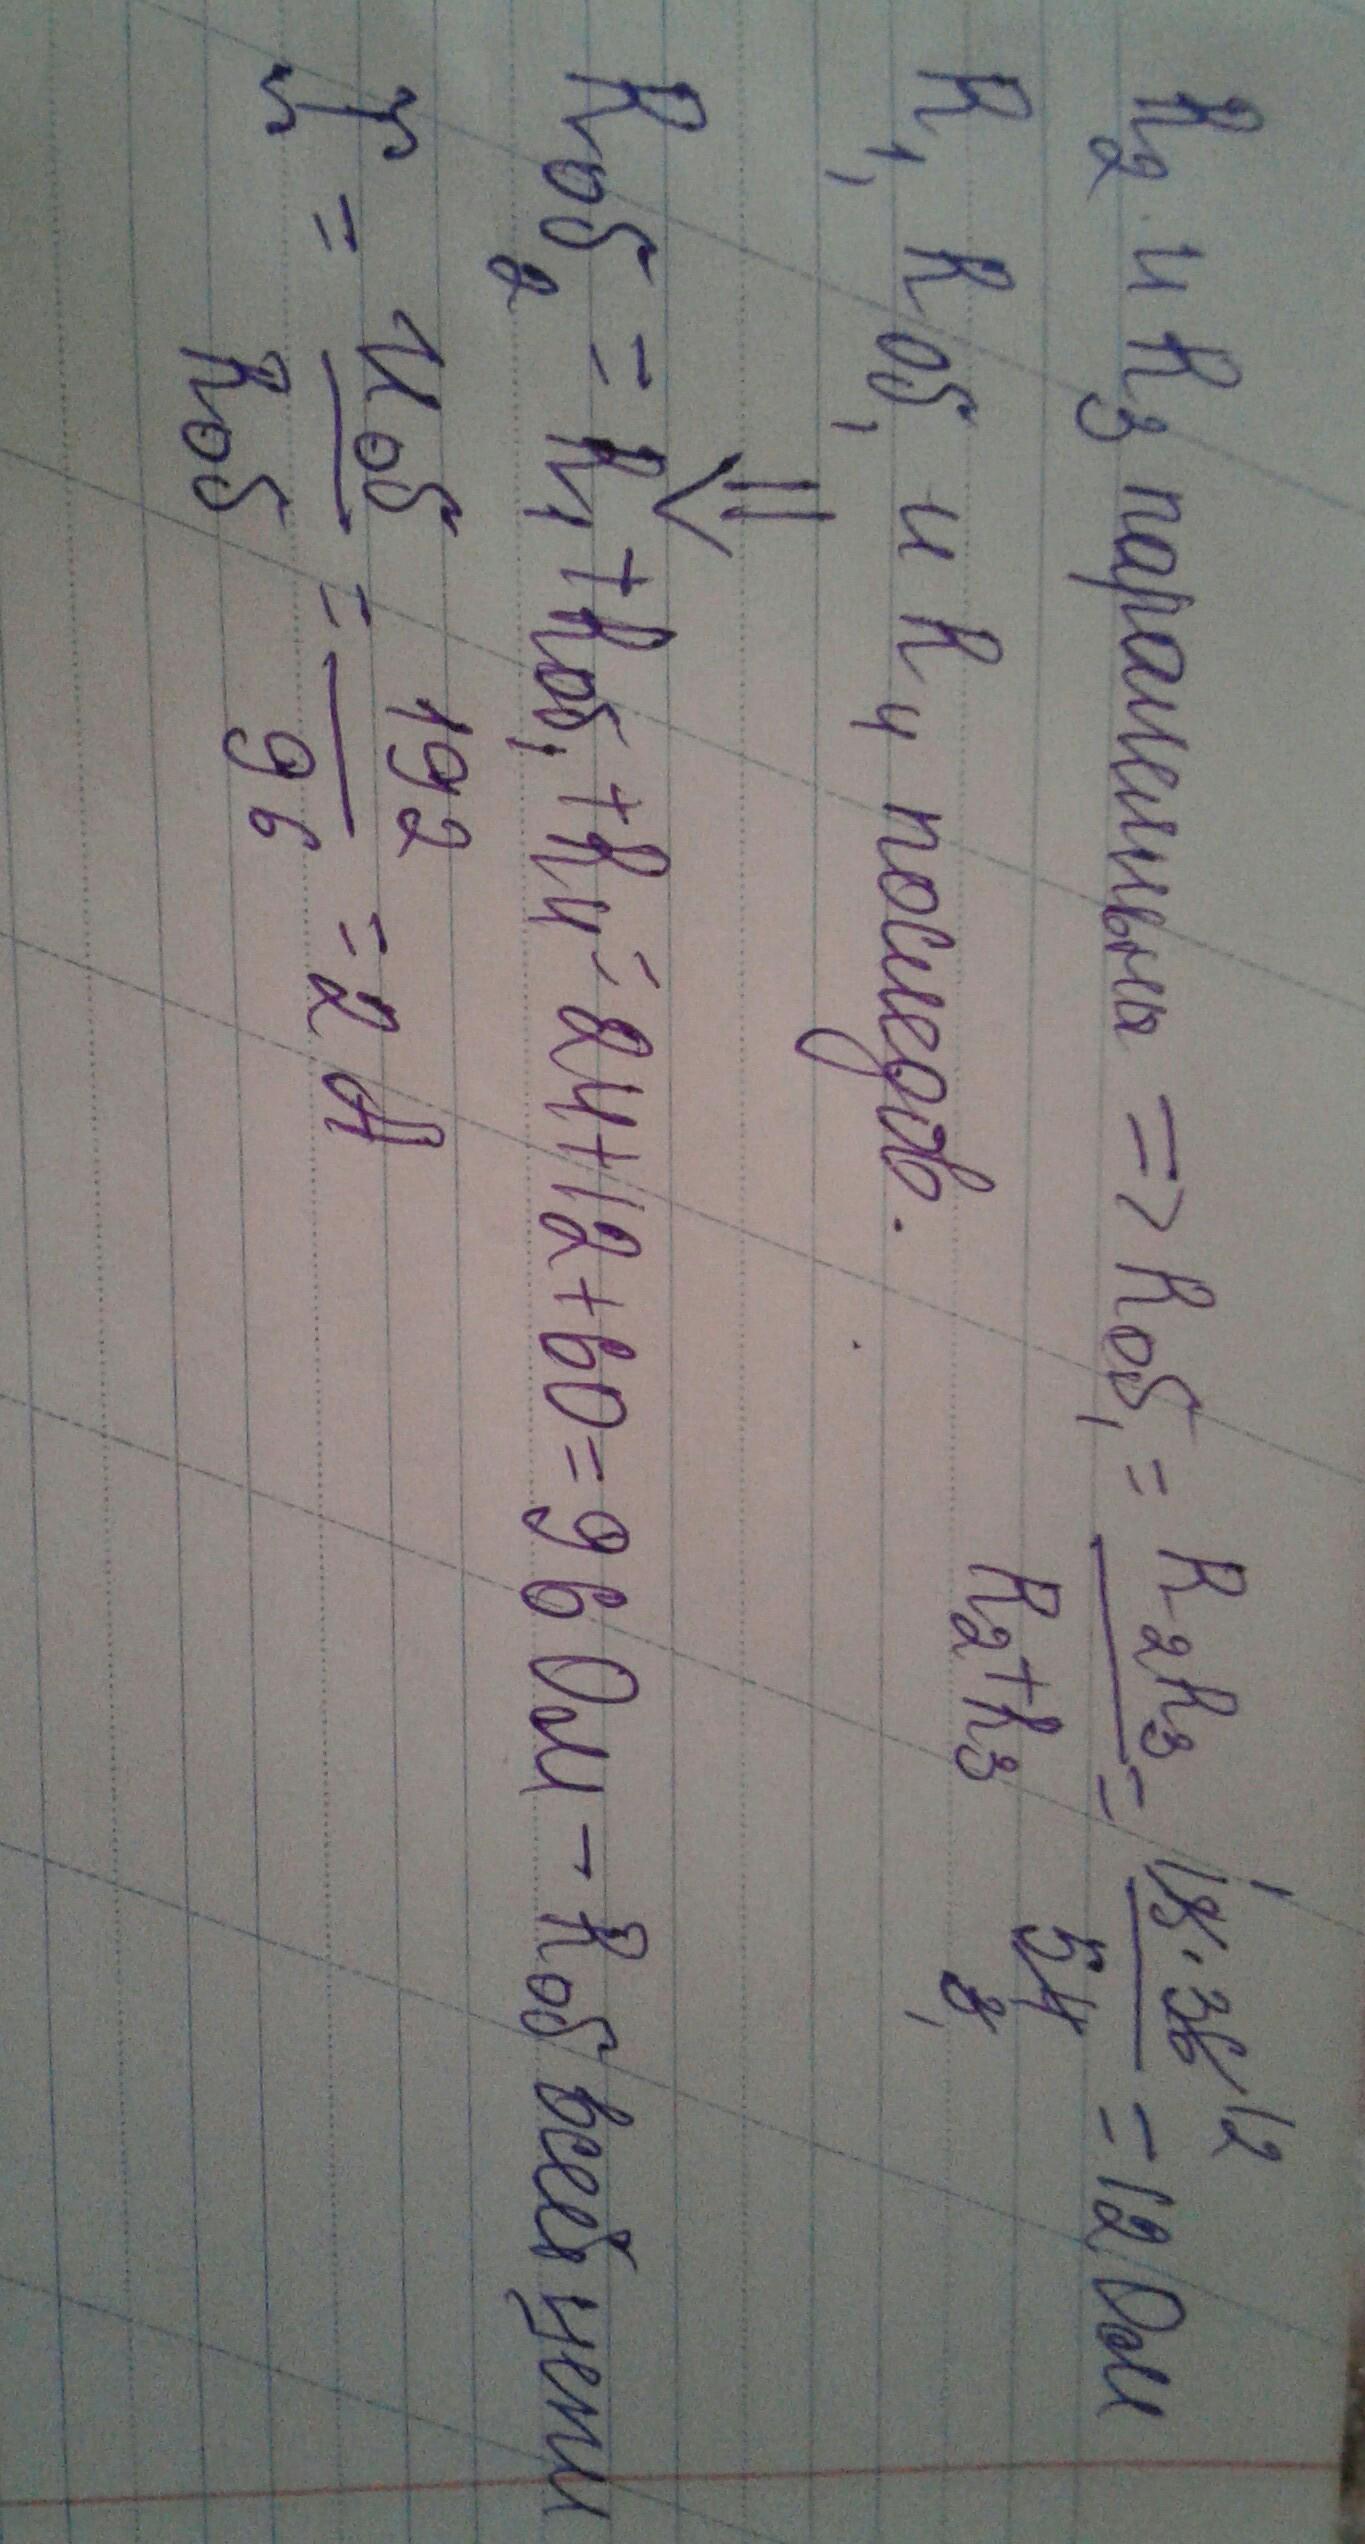 R₂ и R₃ параллельны => Rоб₁ = R₂R₃ / R₂+R₃ = 18·36 / 54 = 12 Ом
R₁, Rоб₁ и R₄ последов.
⇓
Rоб₂ = R₁ + Rоб₁ + R₄ = 24+12+60=96 Ом - Rоб всей цепи
I = Uоб / Rоб = 192 / 96 = 2 А